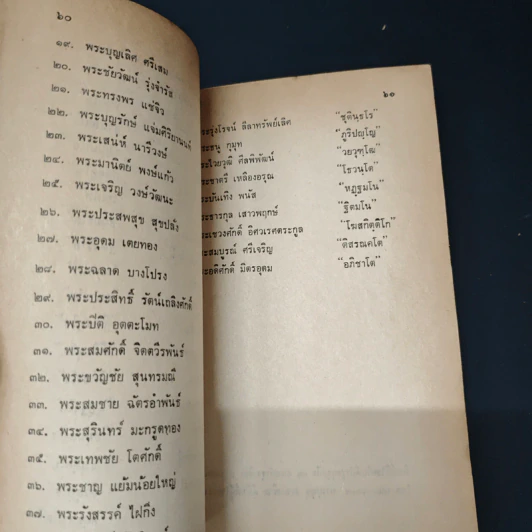 ๖๐
๑๙. พระบุญเลิศ ศรีเสม
๒๐. พระชัยวัฒน์ รุ่งจำรัส
๒๑. พระทรงพร แซ่จิว
๒๒. พระบุญรักษ์ แจ่มศิริยานนท์
๒๓. พระเสน่ห์ นารีวงษ์
๒๔. พระมานิตย์ พงษ์แก้ว
๒๕. พระเจริญ วงษ์วัฒนะ
๒๖. พระประสพสุข สุขปลั่ง
๒๗. พระอุดม เตยทอง
๒๘. พระฉลาด บางโปรง
๒๙. พระประสิทธิ์ รัตน์เถลิงศักดิ์
๓๐. พระปิติ อุตตะโมท
๓๑. พระสมศักดิ์ จิตตวีรพันธ์
๓๒. พระขวัญชัย สุนทรมณี
๓๓. พระสมชาย ฉัตรอำพันธ์
๓๔. พระสุรินทร์ มะกรูดทอง
๓๕. พระเทพชัย โตศักดิ์
๓๖. พระชาญ แย้มน้อยใหญ่
๓๗. พระรังสรรค์ ไฝกึง
๖๑
ระรุ่งโรจน์ ลีลาทรัพย์เลิศ "ชุตินฺธโร"
ระธนู กุมุท "ภูริปญฺโญ"
ระไวยวุฒิ ศิลพิพัฒน์ "วยวุฑฺโฒ"
ระชาตรี เหลืองอรุณ "โชวนฺโต"
ระบันเทิง พนัส "หฏฺฐมโน"
ระธารกุล เสาวพฤกษ์ "ฐิตมโน"
ระเชวงศักดิ์ อิศวเรศตระกูล "โฆสกิตฺติโก"
ระสมบูรณ์ ศรีเจริญ "ติสรณคโต"
ระอดิศักดิ์ มิตรอุดม "อภิชาโต"